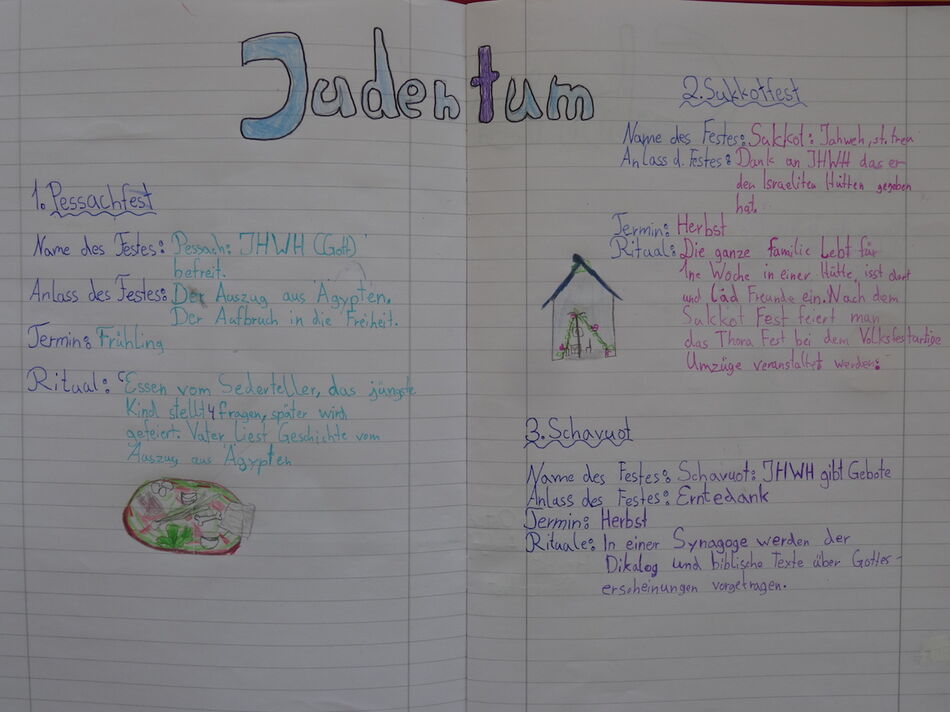 Judentum
1. Pessachfest
Name des Festes: Pessach: JHWH (Gott)
befreit.
Anlass des Festes: Der Auszug aus Ägypten.
Der Aufbruch in die Freiheit.
Termin: Frühling
Ritual: Essen vom Sederteller, das jüngste
Kind stellt 4 fragen, später wird
gefeiert. Vater liest Geschichte vom
Auszug aus Ägypten
2. Sukkotfest
Name des Festes: Sukkot: Jahweh, ist treu
Anlass d. Festes: Dank an JHWH das er
den Israeliten Hütten gegeben
hat.
Termin: Herbst
Ritual: Die ganze familie Lebt für
1ne Woche in einer Hütte, isst dort
und Läd Freunde ein. Nach dem
Sukkot Fest feiert man
das Thora Fest bei dem Volksfestartige
Umzüge veranstaltet werden.
3. Schavuot
Name des Festes: Schavuot: JHWH gibt Gebote
Anlass des Festes: Erntedank
Termin: Herbst
Rituale: In einer Synagoge werden der
Dikalog und biblische Texte über Gottes-
erscheinungen vorgetragen.